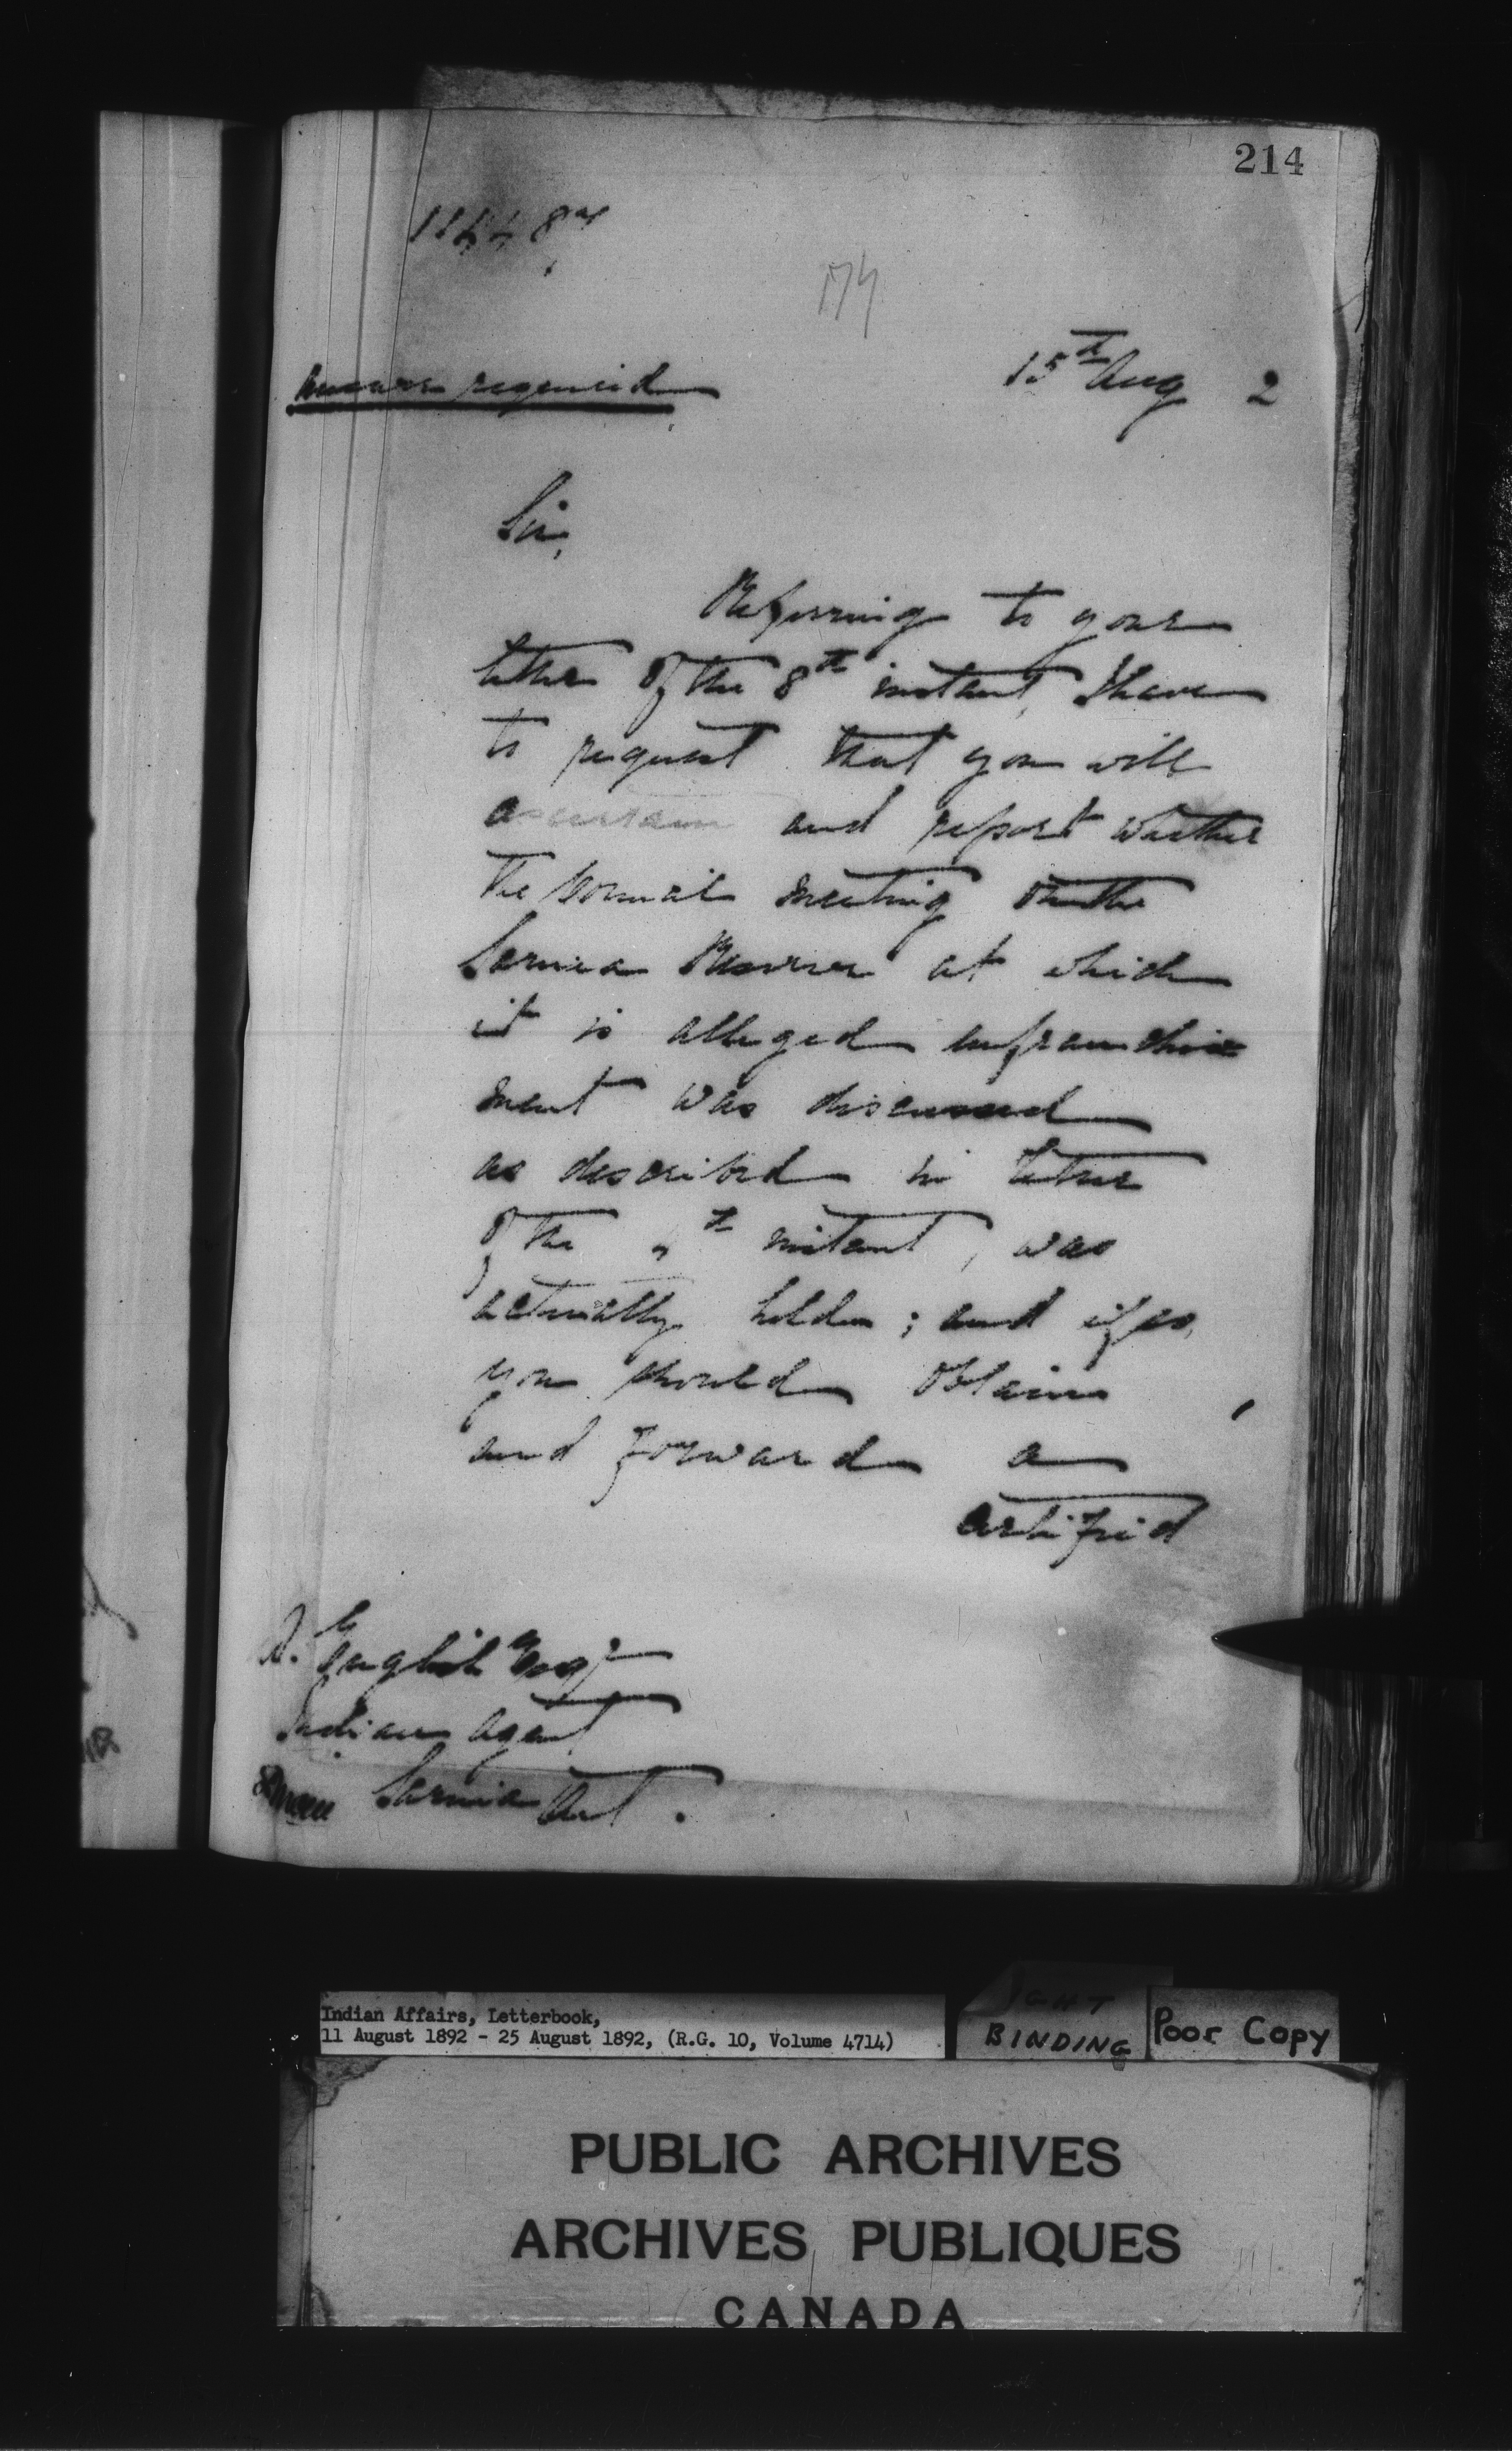 214
174
15th Aug 2
Answer required
Sir,
Referring to your
letter of the 8th instant, I have
to request that you will
ascertain and report whether
the Council meeting on the
Sarnia Reserve at which
it is alleged enfranchise
ment was discussed
as described in letter
of the 4th instant, was
actually holden; and if so,
you should obtain
and forward a
certified
A. English Esqr
Indian Agent
Sarnia Ont.
Indian Affairs, Letterbook,
11 August 1892 - 25 August 1892, (R.G. 10, Volume 4714)
BINDING
Poor Copy
PUBLIC ARCHIVES
ARCHIVES PUBLIQUES
CANADA